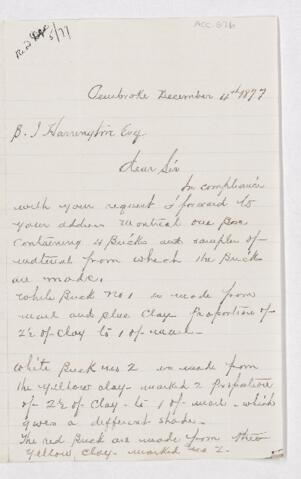 ACC. 876
5/77
Pembroke December 4th 1877
B. J Harrington Esq
Dear Sir
In compliance
with your request I forward to
your address Montreal one Box
Containing 4 Bricks and samples of
material from which the Brick
are made.
White Brick No 1 is made from
marl and blue Clay. Proportion of
2½ of Clay to 1 of marl.
White Brick No 2 is made from
the yellow clay - marked 2 Proportion
of 2½ of Clay - to 1 of marl - which
gives a different shade.
The red Brick are made from the
Yellow Clay - marked No 2.